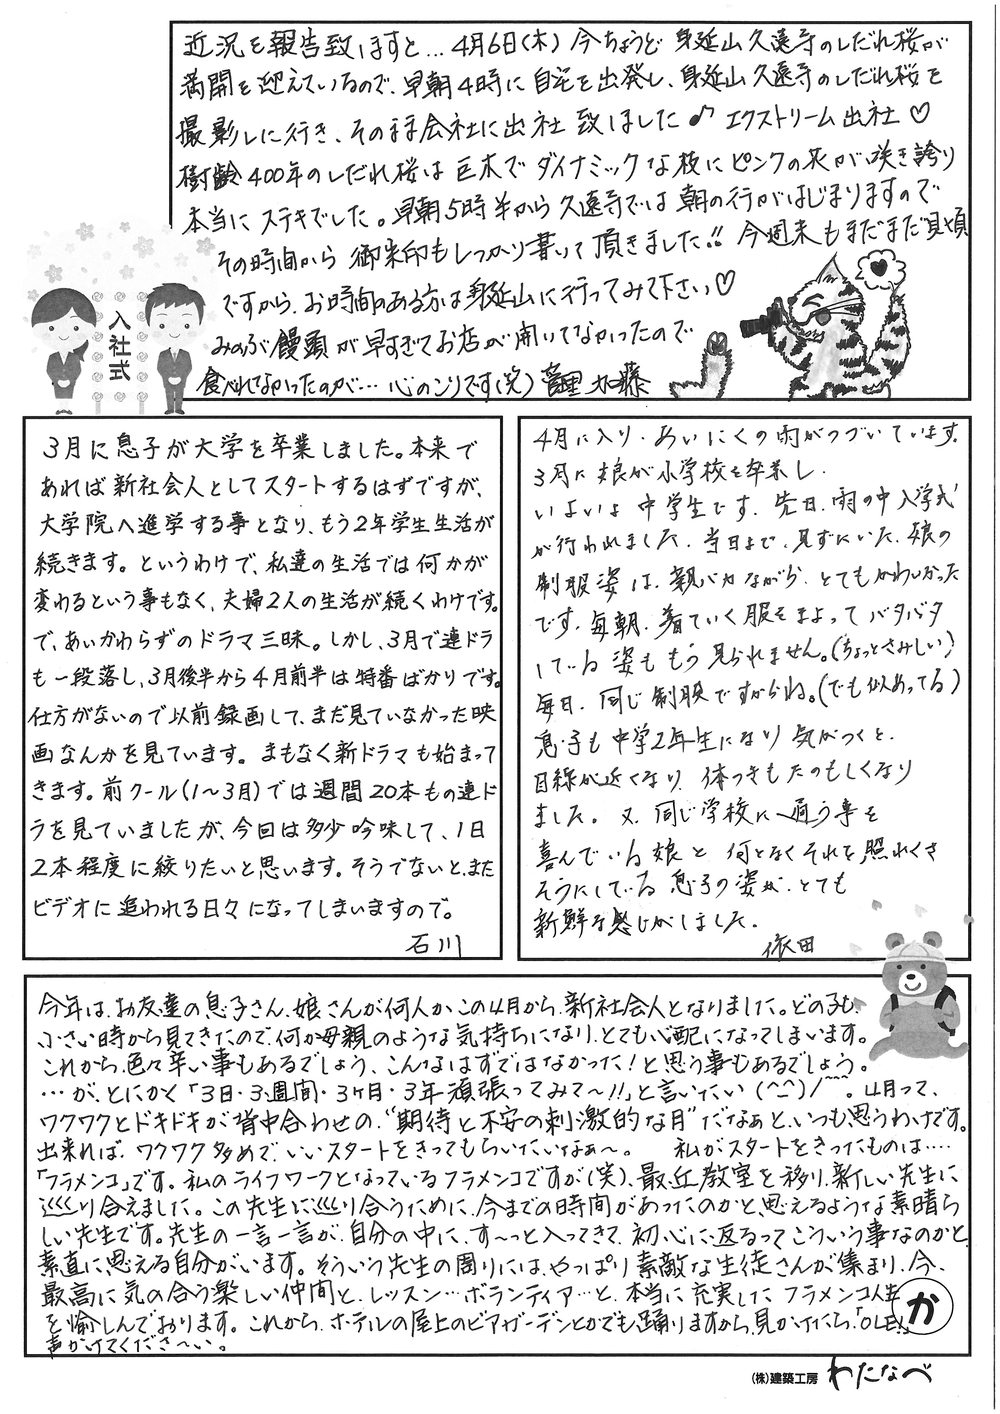 近況を報告致しますと…4月6日(木) 今ちょうど 身延山久遠寺のしだれ桜が
満開を迎えているので、早朝4時に自宅を出発し、身延山久遠寺のしだれ桜を
撮影しに行き、そのまま会社に出社致しました♪ エクストリーム出社♡
樹齢400年のしだれ桜は巨木でダイナミックな枝にピンクの花が咲き誇り
本当にステキでした。早朝5時半から久遠寺では朝の行がはじまりますので
その時間から御朱印もしっかり書いて頂きました!! 今週末もまだまだ見頃
ですから、お時間のある方は身延山に行ってみて下さい♡
みのぶ饅頭が早すぎてお店が開いてなかったので
食べれなかったのが…心のこりです(笑) 管理 加藤
入社式
3月に息子が大学を卒業しました。本来で
あれば新社会人としてスタートするはずですが、
大学院へ進学する事となり、もう2年学生生活が
続きます。というわけで、私達の生活では何かが
変わるという事もなく、夫婦2人の生活が続くわけです。
で、あいかわらずのドラマ三昧。しかし、3月で連ドラ
も一段落し、3月後半から4月前半は特番ばかりです。
仕方がないので以前録画して、まだ見ていなかった映
画なんかを見ています。まもなく新ドラマも始まって
きます。前クール(1～3月)では週間20本もの連ド
ラを見ていましたが、今回は多少吟味して、1日
2本程度に絞りたいと思います。そうでないと、また
ビデオに追われる日々になってしまいますので。
石川
4月に入り、あいにくの雨がつづいています。
3月に娘が小学校を卒業し、
いよいよ中学生です。先日、雨の中入学式
が行われました。当日まで、見ずにいた、娘の
制服姿は、親バカながら、とてもかわいかった
です。毎朝、着ていく服をまよってバタバタ
している姿ももう見られません。(ちょっとさみしい)
毎日、同じ制服ですからね。(でも似あってる)
息子も中学2年生になり気がつくと、
目線が近くなり、体つきもたのもしくなり
ました。又、同じ学校に通う事を
喜んでいる娘と何となくそれを照れくさ
そうにしている息子の姿が、とても
新鮮な感じがしました。
依田
今年は、お友達の息子さん、娘さんが何人か、この4月から、新社会人となりました。どの子も、
小さい時から見てきたので、何か母親のような気持ちになり、とても心配になってしまいます。
これから、色々辛い事もあるでしょう、こんなはずではなかった!と思う事もあるでしょう。
…が、とにかく「3日・3週間・3ヶ月・3年頑張ってみて～!!」と言いたい(^^)/~~~。4月って、
ワクワクとドキドキが背中合わせの、"期待と不安の刺激的な月"だなぁと、いつも思うわけです。
出来れば、ワクワク多めで、いいスタートをきってもらいたいなぁ～。 私がスタートをきったものは……
「フラメンコ」です。私のライフワークとなっているフラメンコですが(笑)、最近教室を移り、新しい先生に
巡り合えました。この先生に巡り合うために、今までの時間があったのかと、思えるような素晴ら
しい先生です。先生の一言一言が、自分の中に、す～っと入ってきて、初心に返るってこういう事なのかと、
素直に思える自分がいます。そういう先生の周りには、やっぱり素敵な生徒さんが集まり、今、
最高に気の合う楽しい仲間と、レッスン…ボランティア…と、本当に充実したフラメンコ人生
を愉しんでおります。これから、ホテルの屋上のビアガーデンとかでも踊りますから、見かけたら、「OLE!」
声かけてくださ～い。
か
(株)建築工房 わたなべ